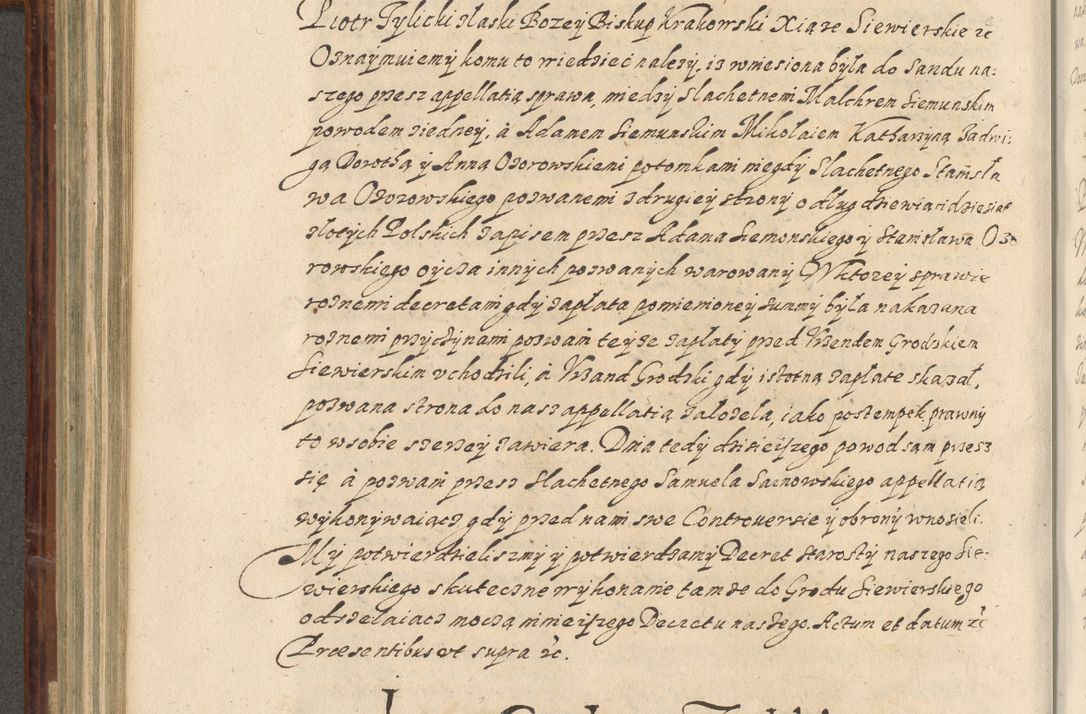 Piotr Tylicki z łaski Bozey Biskup Krakowski Xiąze Siewierskie etc
Oznaymuiemy komu to wiedzieć nalezy, iz wniesiona była do Sandu na:
szego przez appellatią sprawa, miedzy Slachetnemi Malchrem Siemunskim
powodem ziedney, à Adamem Siemunskim Mikolaiem Katharzyną Jadwi:
gą Dorothą y Anną Ozorowskiemi potomkami niegdy Slachetnego Stanisła
wa Ozorowskiego pozwanemi z drugiey strony o dług dziewiącidziesiąt
złotych Polskich zapisem przez Adama Siemonskiego y Stanisława Ozo
rowskiego oyćza innych pozwanych warowany W ktorey sprawie
roznemi decretami gdy zapłata pomienioney summy była nakazana
roznemi przyczynami pozwani teyze zapłaty przed Vrzendem Grodzkiem
Siewierskim vchodzili, à Vrzand Grodzki gdy istotną zapłate skazał,
pozwana strona do nas appellatią założela, iako postempek prawny
to w sobie szerzey zawiera. Dnia tedy dzisieiszego powod sam przez
się à pozwani przez Slachetnego Samuela Sarnowskiego appellatią
wykonywaiącz, gdy przed nami swe Controuersie y obrony wnosieli.
My potwierdzieliszmy y potwierdzamy Decret Starosty naszego Sie-
wierskiego skuteczne wykonanie tamze do Grodu Siewierskiego
odszelaiącz moczą ninieiszego Decretu naszego. Actum et datum etc
Præsentibus vt supra etc.